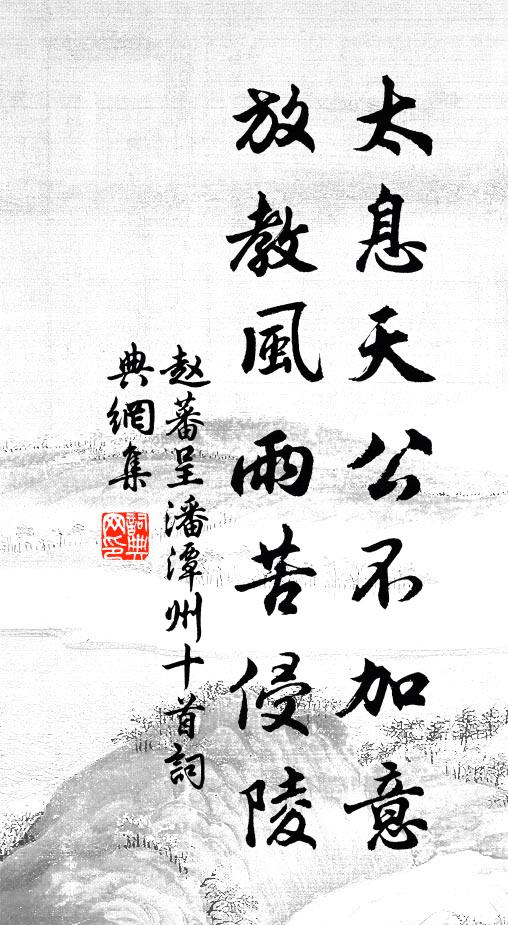 太息天公不加意
放教風雨苦侵陵
赵蕃呈潘潭州十首詞
典網集
詞典
网印